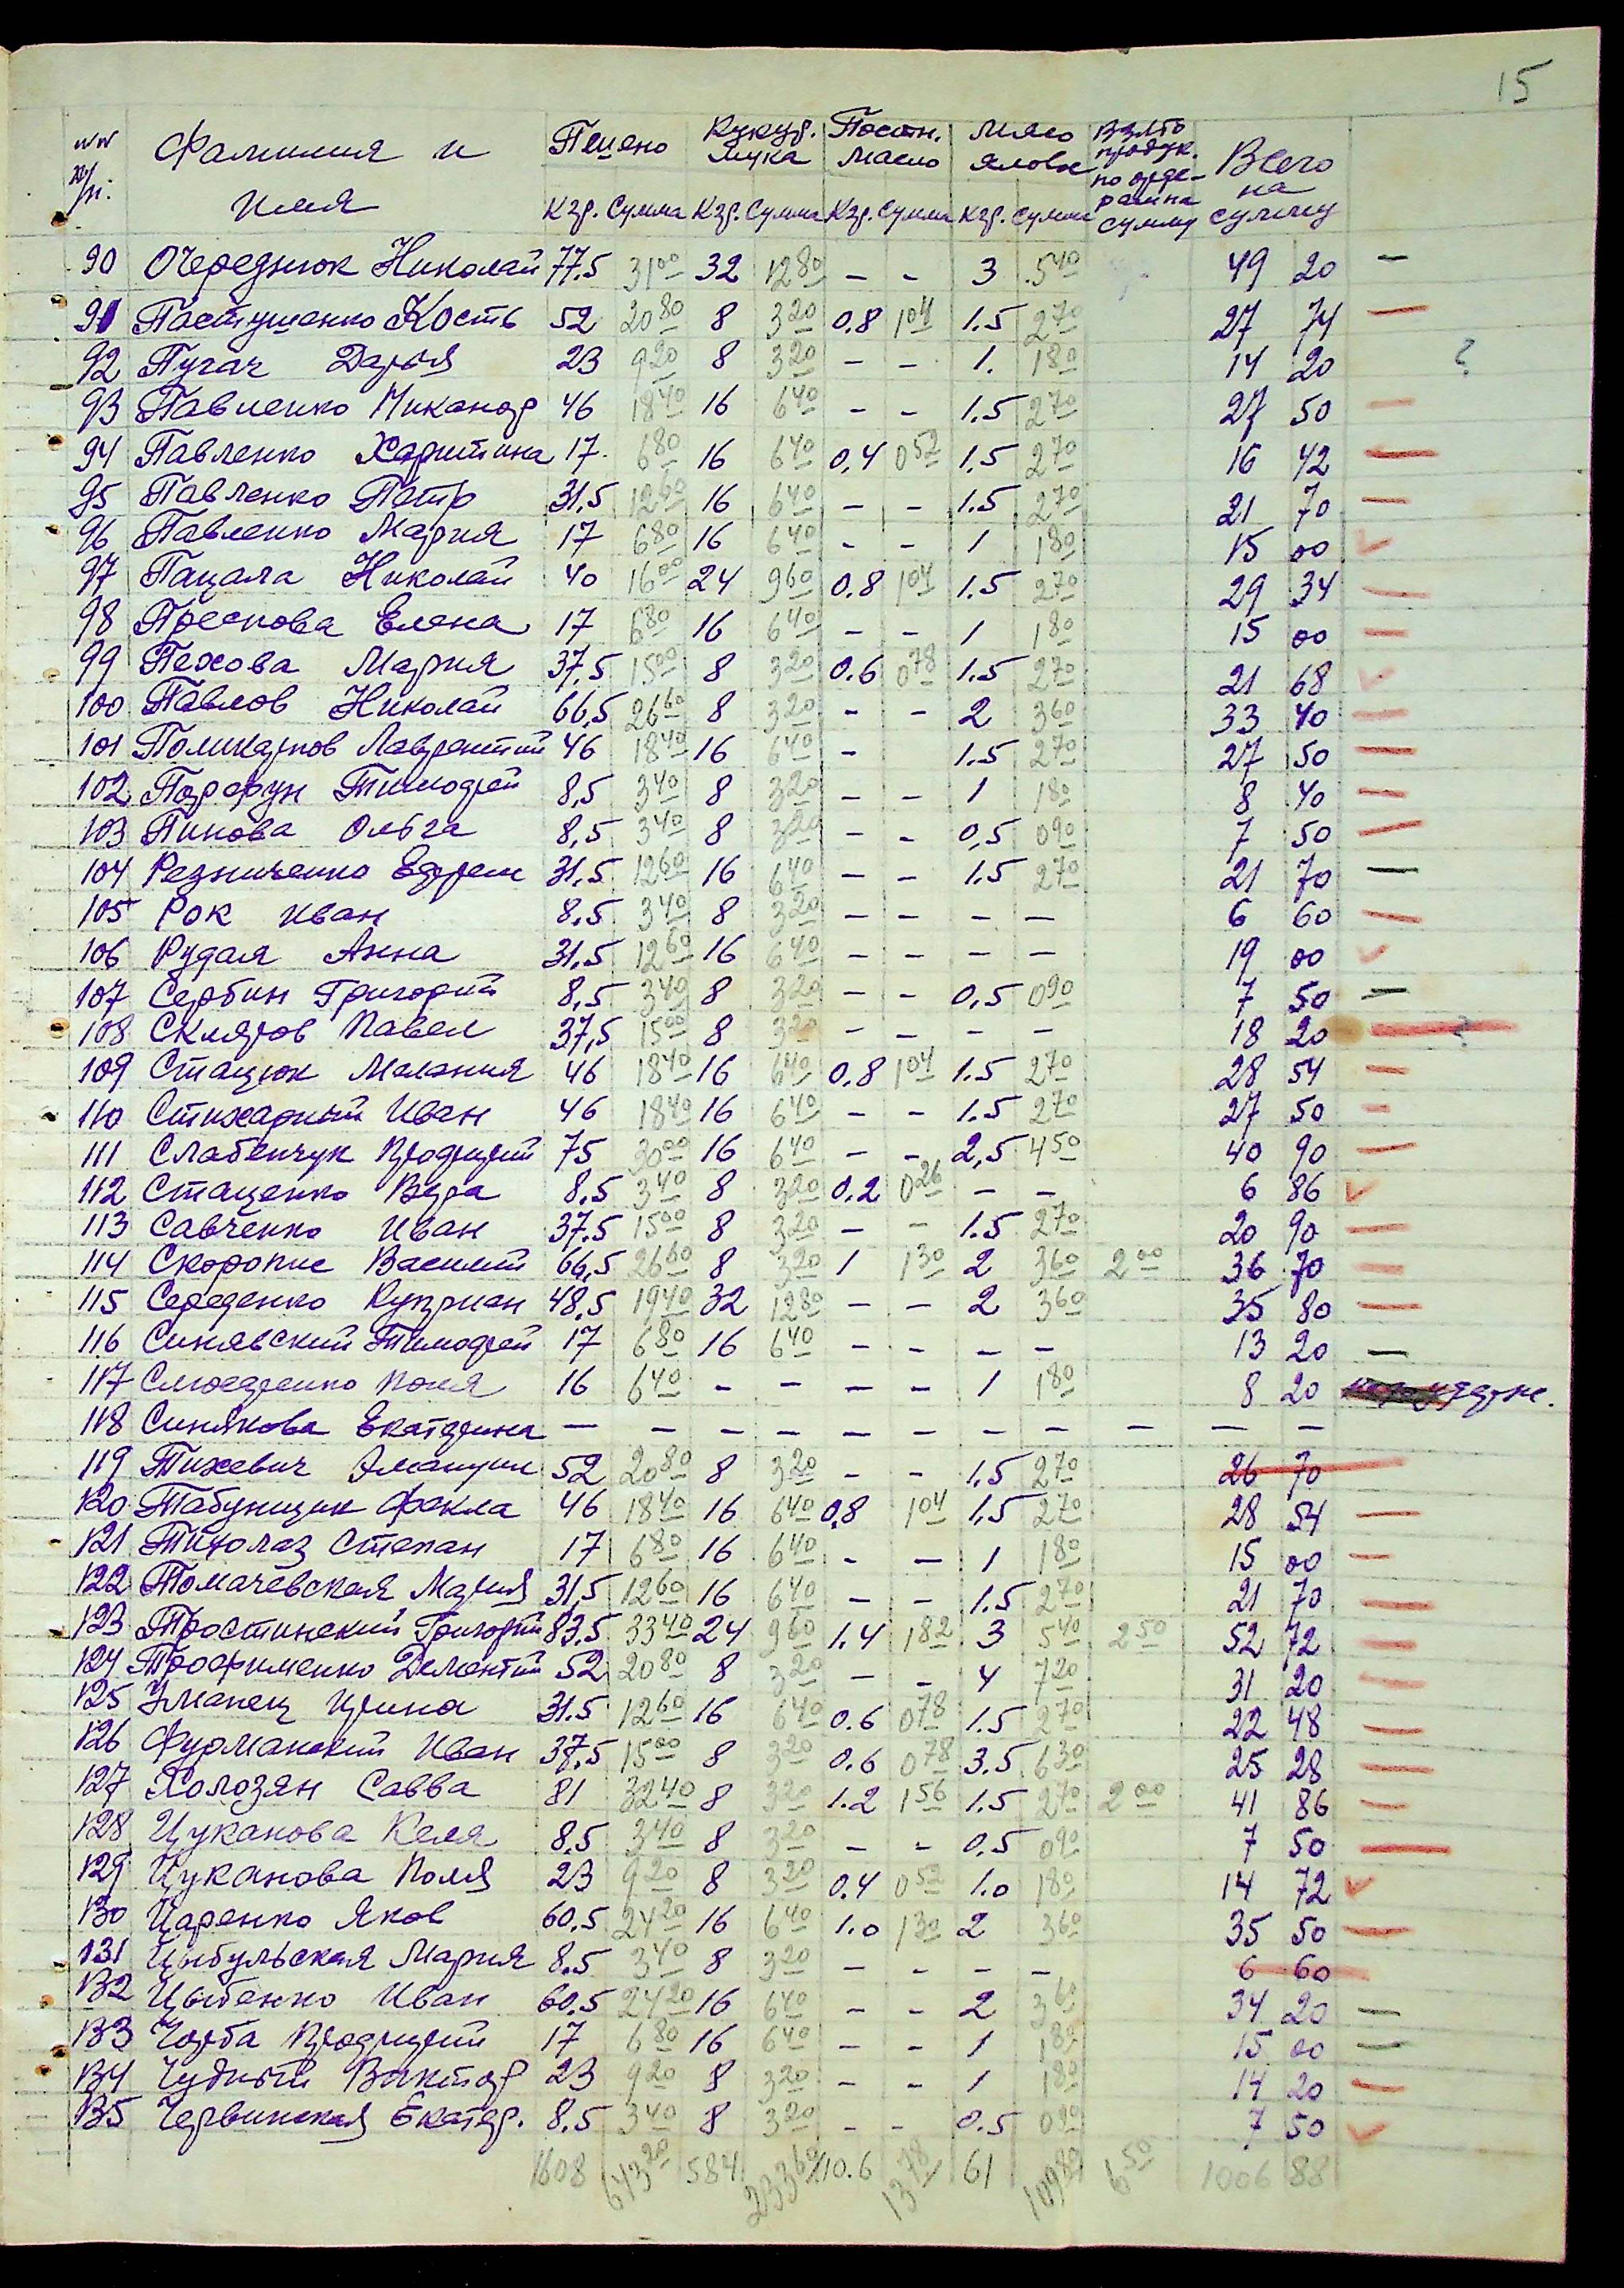 15
№№ п/п. Фамилия и имя Пшено Кукур. мука Постн. масло Мясо яловое Взято продук. по орде- рам на сумму Всего на сумму
Кгр. Сумма Кгр. Сумма Кгр. Сумма Кгр. Сумма
90 Очереднюк Николай 77.5 31 00 32 12 80 – – 3 5 40 49 20 —
91 Пастушенко Кость 52 20 80 8 3 20 0.8 1 04 1.5 2 70 27 74 —
92 Пугач Дарья 23 9 20 8 3 20 – – 1. 1 80 14 20 ?
93 Павленко Никанор 46 18 40 16 6 40 – – 1.5 2 70 27 50 —
94 Павленко Харитина 17. 6 80 16 6 40 0,4 0 52 1.5 2 70 16 42 —
95 Павленко Петр 31.5 12 60 16 6 40 – – 1.5 2 70 21 70 —
96 Павленко Мария 17 6 80 16 6 40 – – 1 1 80 15 00 ✓
97 Пацала Николай 40 16 00 24 9 60 0.8 1 04 1.5 2 70 29 34 —
98 Преснова Елена 17 6 80 16 6 40 – – 1 1 80 15 00 —
99 Пехова Мария 37.5 15 00 8 3 20 0.6 0 78 1.5 2 70 21 68 ✓
100 Павлов Николай 66,5 26 60 8 3 20 – – 2 3 60 33 40 —
101 Поликарпов Лаврентий 46 18 40 16 6 40 – 1.5 2 70 27 50 —
102 Тимофей 8,5 3 40 8 3 20 – – 1 1 80 8 40 —
103 Пинова Ольга 8,5 3 40 8 3 20 – – 0,5 0 90 7 50 —
104 Резниченко Ефрем 31.5 12 60 16 6 40 – – 1.5 2 70 21 70 —
105 Рок Иван 8.5 3 40 8 3 20 – – – – 6 60 —
106 Рудая Анна 31.5 12 60 16 6 40 – – – – 19 00 ✓
107 Сербин Григорий 8,5 3 40 8 3 20 – – 0,5 0 90 7 50 —
108 Скляров Павел 37,5 15 00 8 3 20 – – – – 18 20 — ?
109 Стацюк Мелания 46 18 40 16 6 40 0.8 1 04 1.5 2 70 28 54 —
110 Стихарный Иван 46 18 40 16 6 40 – – 1.5 2 70 27 50 —
111 Слабенчук Прокофий 75 30 00 16 6 40 – – 2,5 4 50 40 90 —
112 Стаценко Вера 8.5 3 40 8 3 20 0.2 0 26 – – 6 86 ✓
113 Савченко Иван 37.5 15 00 8 3 20 – – 1.5 2 70 20 90 —
114 Скоропис Василий 66,5 26 60 8 3 20 1 1 30 2 3 60 2 00 36 70 —
115 Середенко Куприан 48.5 19 40 32 12 80 – – 2 3 60 35 80 —
116 Синявский Тимофей 17 6 80 16 6 40 – – – – 13 20 —
117 Поля 16 6 40 – – – – 1 1 80 8 20
118 Синякова Екатерина – – – – – – – – – – –
119 Тихевич 52 20 80 8 3 20 – – 1.5 2 70 26 70
120 Табунщик Фекла 46 18 40 16 6 40 0,8 1 04 1,5 2 70 28 54 —
121 Тихолаз Степан 17 6 80 16 6 40 – – 1 1 80 15 00 —
122 Томачевская Мария 31,5 12 60 16 6 40 – – 1.5 2 70 21 70 —
123 Тростинский Григорий 83.5 33 40 24 9 60 1.4 1 82 3 5 40 2 50 52 72 —
124 Трофименко Дементий 52 20 80 8 3 20 – – 4 7 20 31 20 —
125 Уманец Ирина 31.5 12 60 16 6 40 0.6 0 78 1.5 2 70 22 48 —
126 Фурманский Иван 37.5 15 00 8 3 20 0.6 0 78 3.5 6 30 25 28 —
127 Холозян Савва 81 32 40 8 3 20 1.2 1 56 1.5 2 70 2 00 41 86 —
128 Цуканова Келя 8.5 3 40 8 3 20 – – 0,5 0 90 7 50 —
129 Цуканова Поля 23 9 20 8 3 20 0.4 0 52 1.0 1 80 14 72 ✓
130 Царенко Яков 60.5 24 20 16 6 40 1.0 1 30 2 3 60 35 50 —
131 Цыбульская Мария 8.5 3 40 8 3 20 – – – – 6 60
132 Цыбенко Иван 60.5 24 20 16 6 40 – – 2 3 60 34 20 —
133 Чорба Прокофий 17 6 80 16 6 40 – – 1 1 80 15 00 —
134 Чудный Виктор 23 9 20 8 3 20 – – 1 1 80 14 20 —
135 Червинская Екатер. 8.5 3 40 8 3 20 – – 0.5 0 90 7 50 ✓
1608 643 20 584 233 60 10.6 13 78 61 109 80 6 50 1006 88